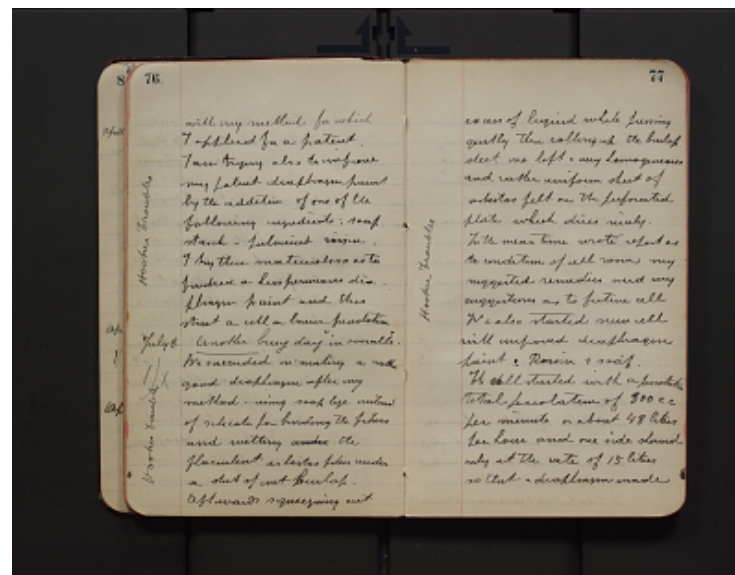 76
with my method for which
I applied for a patent.
I am trying also to improve
my patent diaphragm paint
by the addition of one of the
following ingredients: soap
starch -
I try these materials so as to
produce a less pervious dia-
phragm paint and thus
start a cell a lower percolation
July 8 Another busy day in overalls.
We succeeded in making a
good diaphragm after my
method - using soap lye instead
of silicate for binding the fibres
and wetting the
flocculent asbestos fibres under
a sheet of wet burlap.
Afterwards squeezing out
Hooker Troubles
Hooker Troubles
77
excess of liquid while pressing
gently then rolling up the burlap
sheet we left a very homogeneous
and rather uniform sheet of
asbestos felt on the perforated
plate which dries nicely.
In the mean time wrote report as
to condition of cell room my
suggested remedies and my
suggestions as to future cell
We also started new cell
with improved diaphragm
paint : Rosin & soap.
The cell started with a
total percolation of 800 cc
per minute or about 48 liters
per hour and one side showed
only at the rate of 15 liters
so that a diaphragm made
Hooker Troubles
8
April